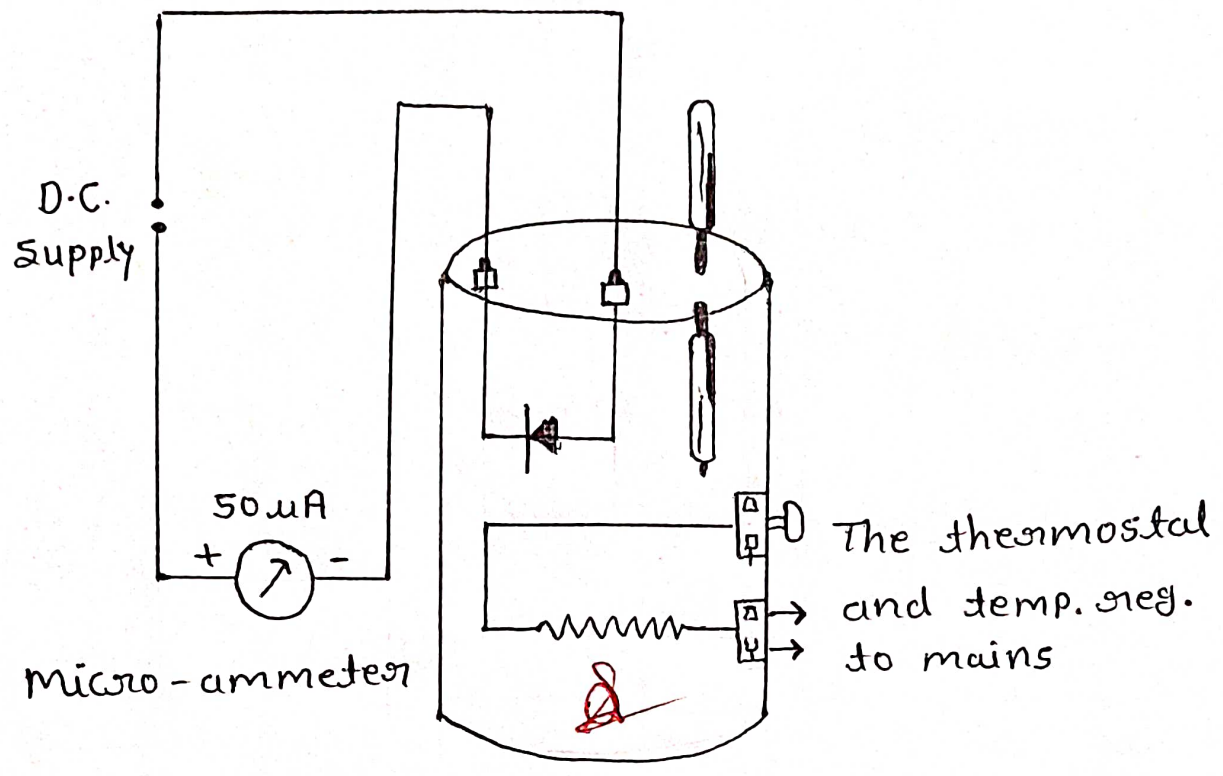 D.C.
Supply
50 µA
+ -
Micro-ammeter
The thermostal
and temp. reg.
to mains